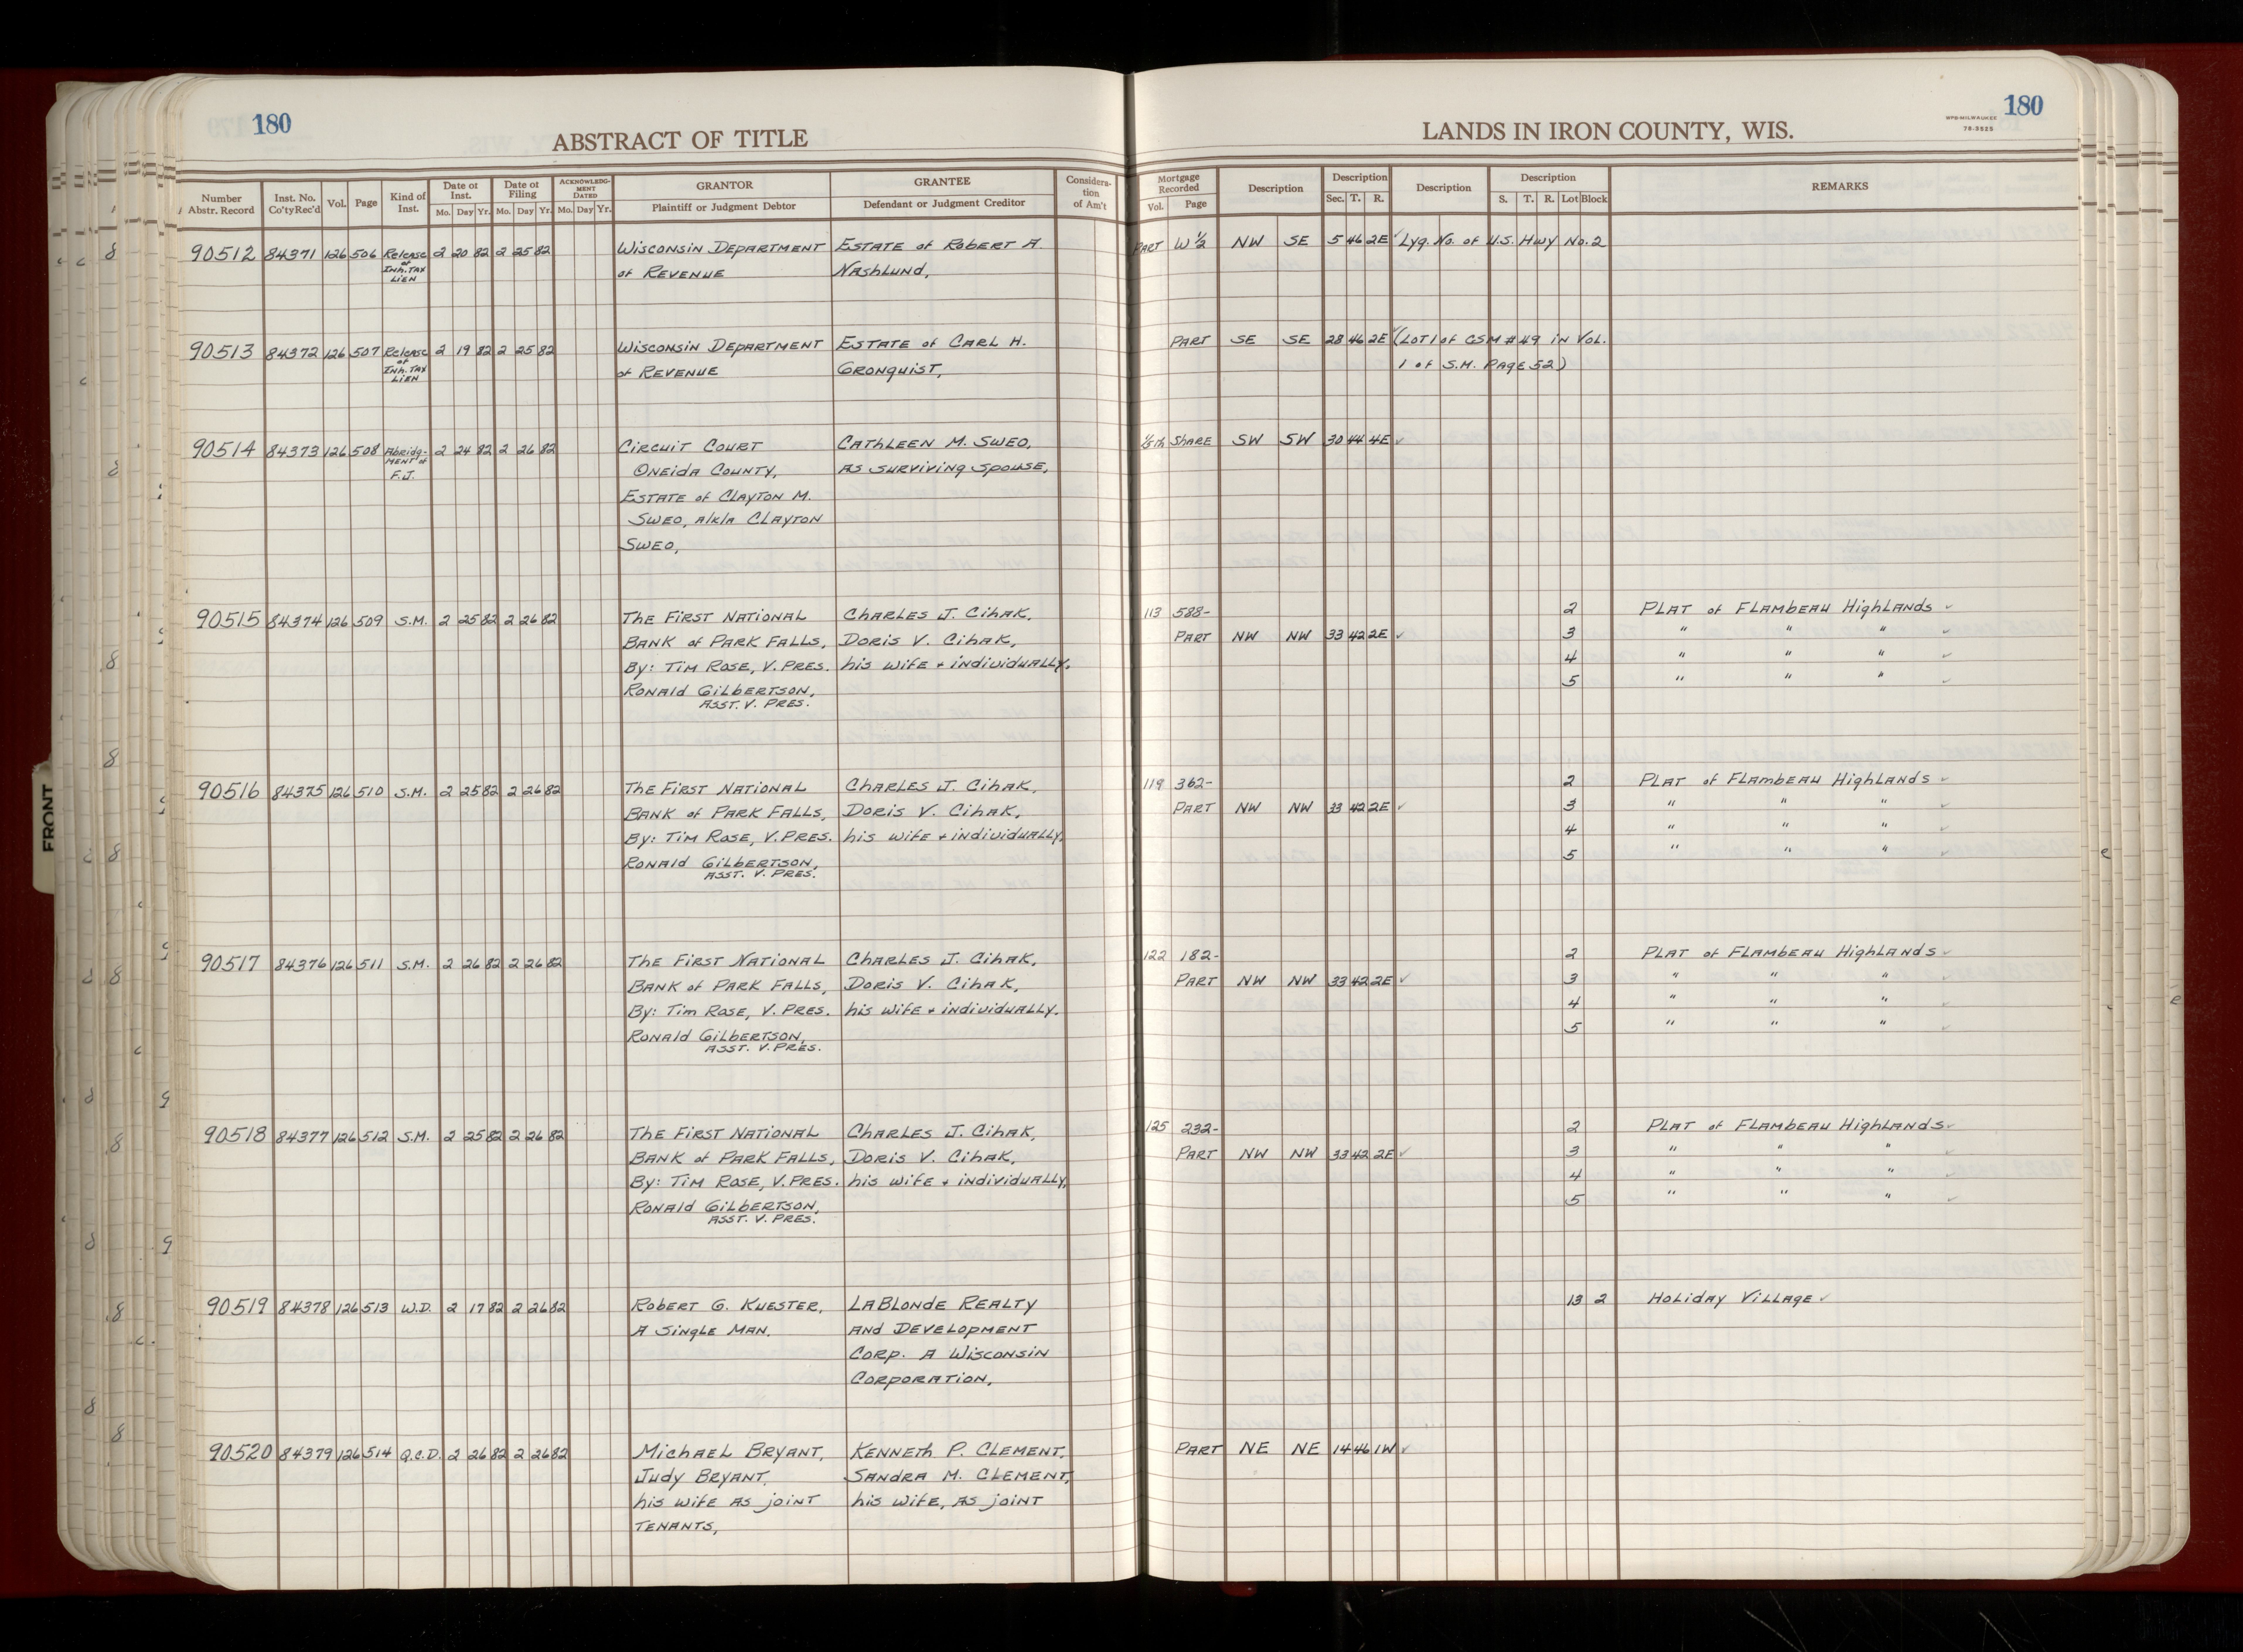 180
ABSTRACT OF TITLE
LANDS IN IRON COUNTY, WIS.
WPB-MILWAUKEE
78-3525
180
Number Abstr. Record | Inst. No. Co'ty Rec'd | Vol. | Page | Kind of Inst. | Date of Inst. Mo. Day Yr. | Date of Filing Mo. Day Yr. | ACKNOWLEDGMENT DATED Mo. Day Yr. | GRANTOR Plaintiff or Judgment Debtor | GRANTEE Defendant or Judgment Creditor | Consideration of Am't | Mortgage Recorded Vol. Page | Description | Description Sec. T. R. | Description | Description S. T. R. Lot Block | REMARKS
90512 84371 126 506 Release 2 20 82 2 25 82 Wisconsin Department Estate of Robert A. Part W 1/2 NW SE 5 46 2E ✓ Lyg. No. of U.S. Hwy No. 2
of Inh. Tax Lien of Revenue Nashlund,
90513 84372 126 507 Release 2 19 82 2 25 82 Wisconsin Department Estate of Carl H. Part SE SE 28 46 2E ✓ (Lot 1 of CSM # 49 in Vol.
of Inh. Tax Lien of Revenue Gronquist, 1 of S.M. Page 52)
90514 84373 126 508 Abridg- 2 24 82 2 26 82 Circuit Court Cathleen M. Sweo, 1/5th Share SW SW 30 44 4E ✓
ment of F.J. Oneida County, as surviving spouse,
Estate of Clayton M.
Sweo, a/k/a Clayton
Sweo,
90515 84374 126 509 S.M. 2 25 82 2 26 82 The First National Charles J. Cihak, 113 588- 2 Plat of Flambeau Highlands ✓
Bank of Park Falls, Doris V. Cihak, Part NW NW 33 42 2E ✓ 3 " " " ✓
By: Tim Rose, V. Pres. his wife + individually. 4 " " " ✓
Ronald Gilbertson, 5 " " " ✓
Asst. V. Pres.
90516 84375 126 510 S.M. 2 25 82 2 26 82 The First National Charles J. Cihak, 119 362- 2 Plat of Flambeau Highlands ✓
Bank of Park Falls, Doris V. Cihak, Part NW NW 33 42 2E ✓ 3 " " " ✓
By: Tim Rose, V. Pres. his wife + individually. 4 " " " ✓
Ronald Gilbertson, 5 " " " ✓
Asst. V. Pres.
90517 84376 126 511 S.M. 2 26 82 2 26 82 The First National Charles J. Cihak, 122 182- 2 Plat of Flambeau Highlands ✓
Bank of Park Falls, Doris V. Cihak, Part NW NW 33 42 2E ✓ 3 " " " ✓
By: Tim Rose, V. Pres. his wife + individually. 4 " " " ✓
Ronald Gilbertson, 5 " " " ✓
Asst. V. Pres.
90518 84377 126 512 S.M. 2 25 82 2 26 82 The First National Charles J. Cihak, 125 232- 2 Plat of Flambeau Highlands ✓
Bank of Park Falls, Doris V. Cihak, Part NW NW 33 42 2E ✓ 3 " " " ✓
By: Tim Rose, V. Pres. his wife + individually, 4 " " " ✓
Ronald Gilbertson, 5 " " " ✓
Asst. V. Pres.
90519 84378 126 513 W.D. 2 17 82 2 26 82 Robert G. Kuester, LaBlonde Realty 13 2 Holiday Village ✓
A Single Man. and Development
Corp. A Wisconsin
Corporation,
90520 84379 126 514 Q.C.D. 2 26 82 2 26 82 Michael Bryant, Kenneth P. Clement, Part NE NE 14 46 1W ✓
Judy Bryant, Sandra M. Clement,
his wife as joint his wife, as joint
tenants,
FRONT